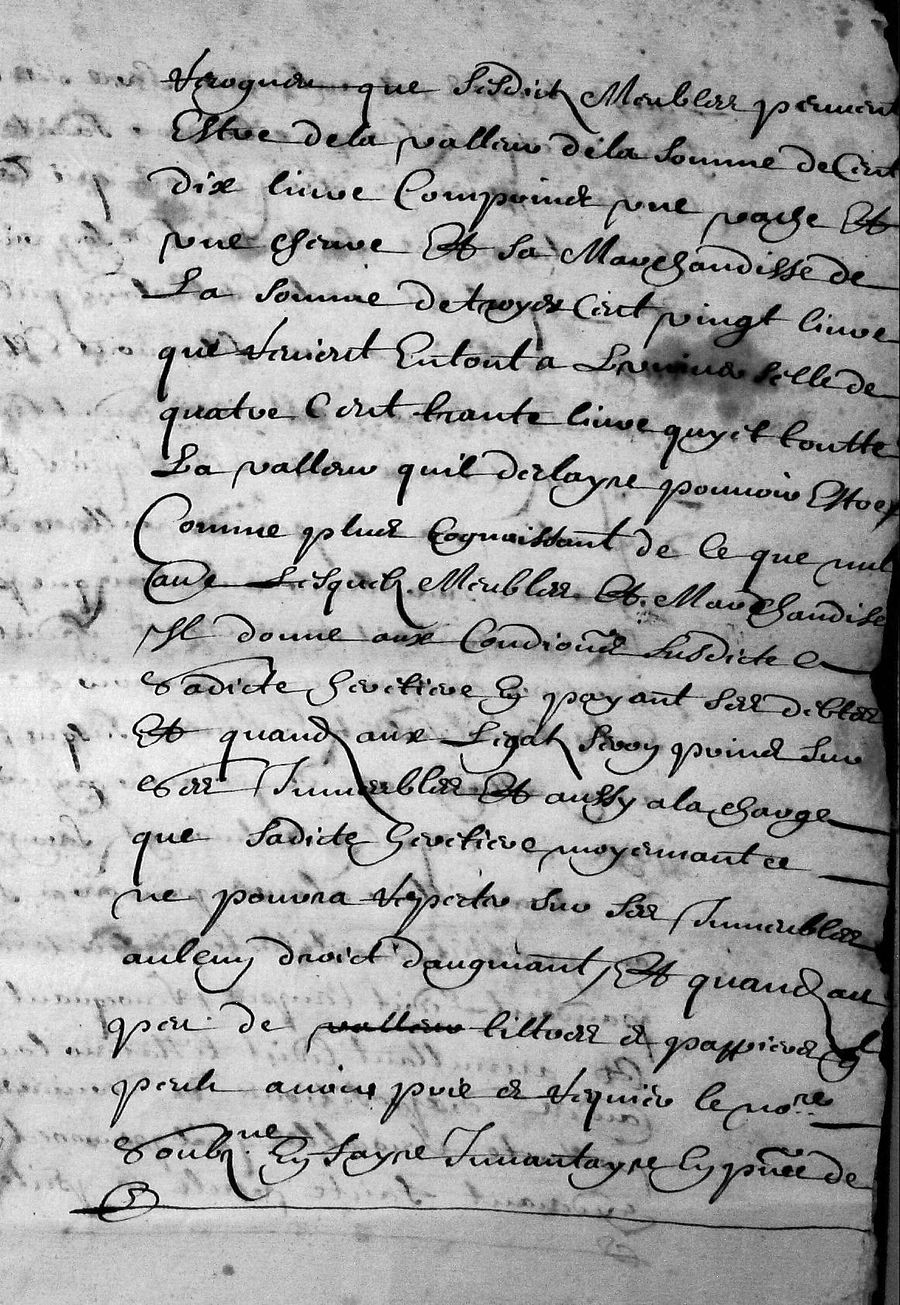 que sesdictz Meubles peuvent
Estre de la valleur de la somme de Cent
dix livre Compvins une vache Et
une chevre Et sa Marchandisse de
La somme de troyes Cent vingt livre
que revient En tout a selle de
quatre Cent trante livre quy et toutte
La valleur quil deslayre pouvoir Estre
Comme plus Cognoissant de ce que nul
autre Lesquelz Meubles Et Marchandise
Il donne aux Condions susdicte a
Sadicte heretiere En payant ses debtes
Et quand aux Legatz seron prins sur
Ses Immeubles Et aussy a la charge
que sadicte heretiere moyennant ce
ne pourra repeter sur ses Immeubles
auleun droict daugmant, Et quand au
peu de valleur tiltres et pappiers quil
peult avoir prie et requier le nore
Soubzne En fayre Invantayre En pnce de